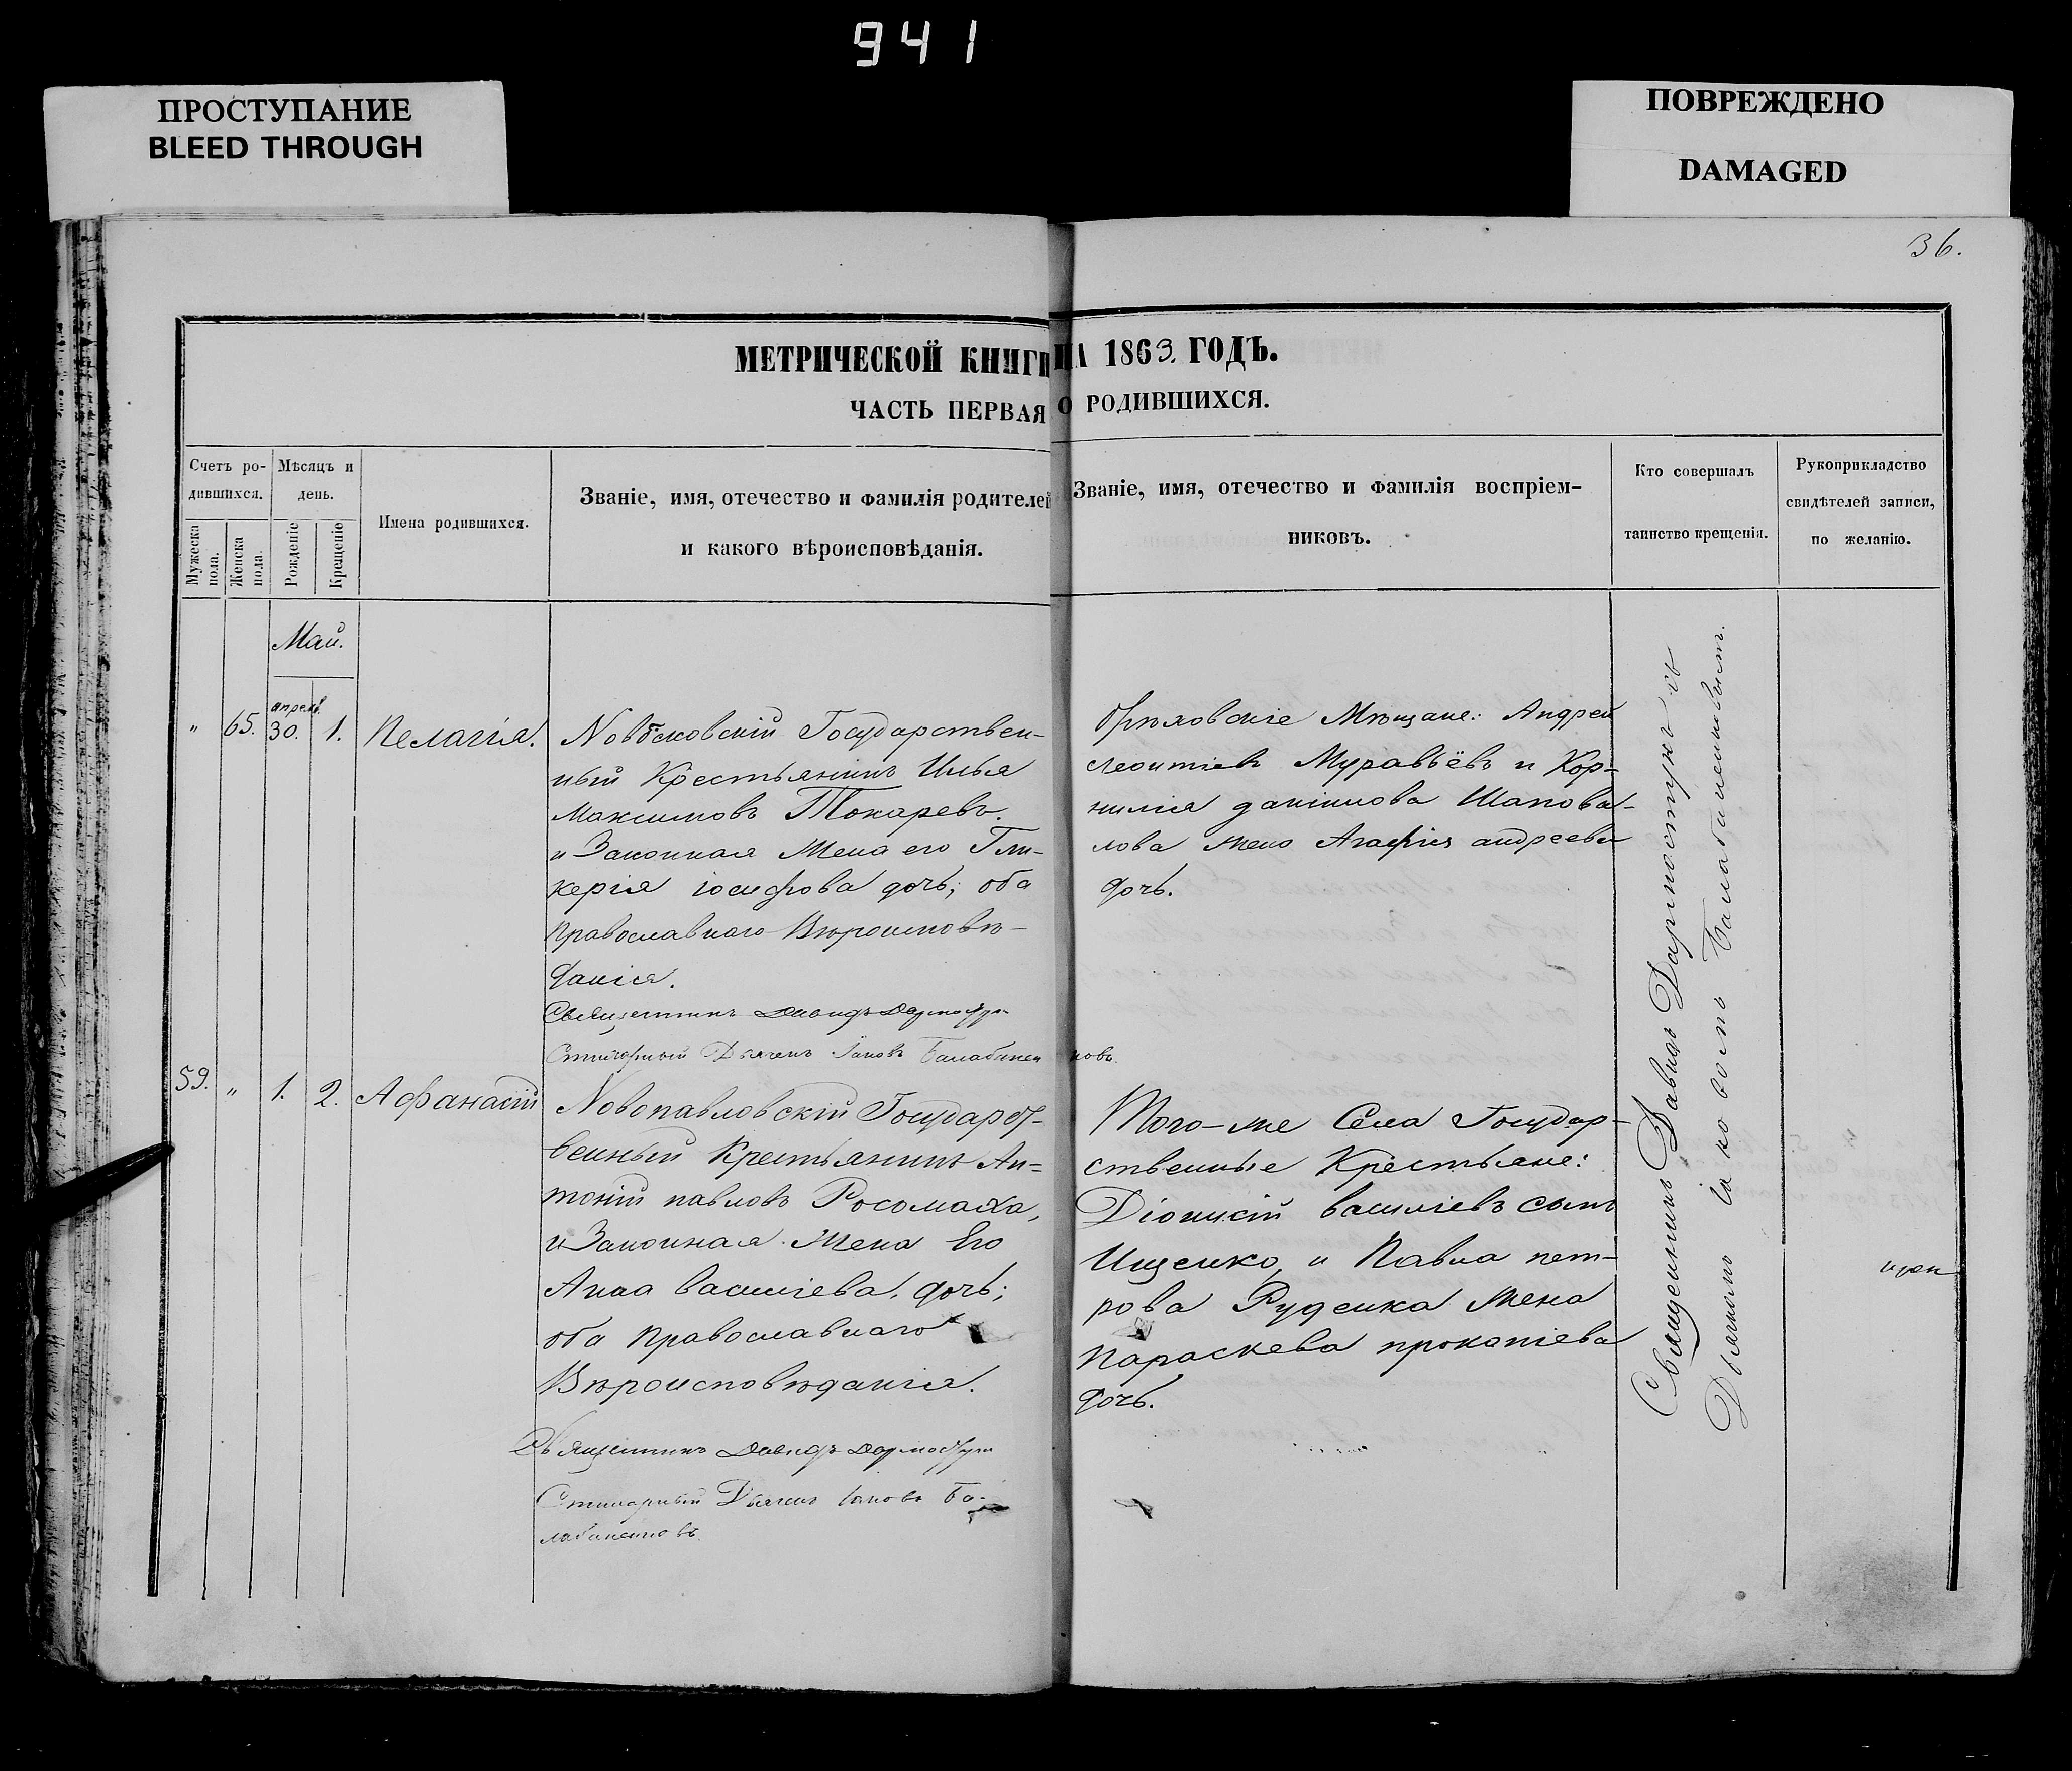 941
ПРОСТУПАНИЕ
BLEED THROUGH
ПОВРЕЖДЕНО
DAMAGED
36.
МЕТРИЧЕСКОЙ КНИГИ НА 1863. ГОДЪ.
ЧАСТЬ ПЕРВАЯ О РОДИВШИХСЯ.
Счетъ ро-
дившихся.
Мужеска
пола.
Женска
пола.
Мѣсяцъ и
день.
Рожденіе
Крещеніе
Имена родившихся.
Званіе, имя, отечество и фамилія родителей
и какого вѣроисповѣданія.
Званіе, имя, отечество и фамилія воспріем-
никовъ.
Кто совершалъ
таинство крещенія.
Рукоприкладство
свидѣтелей записи,
по желанію.
Май.
апрель.
" 65. 30. 1. Пелагія.
Государствен-
ный Крестьянинъ Илья
Максимовъ Токаревъ.
и Законная Жена его Гли-
керія іосифова дочь; оба
православнаго Вѣроисповѣ-
данія.
Священникъ Давидъ
Дьячекъ Іаковъ
Орѣховскіе Мѣщане: Андрей
леонтіевъ Муравьёвъ и Кор-
нилія даніилова Шапова-
лова жена Агафія андреева
дочь.
59. " 1. 2. Афанасій
Новопавловскій Государст-
венный Крестьянинъ Ан-
тоній павловъ Росомаха,
и Законная Жена Его
Анна василіева, дочь;
оба православнаго
Вѣроисповѣданія.
Священникъ Давидъ
Дьячекъ Іаковъ Ба-
Того-же Села Государ-
ственные Крестьяне:
Діонисій василіевъ сынъ
Ищенко, и Павла пет-
рова Руденка Жена
параскева прокопіева
дочь.
Священникъ Давидъ
Дьячкомъ Іаковомъ